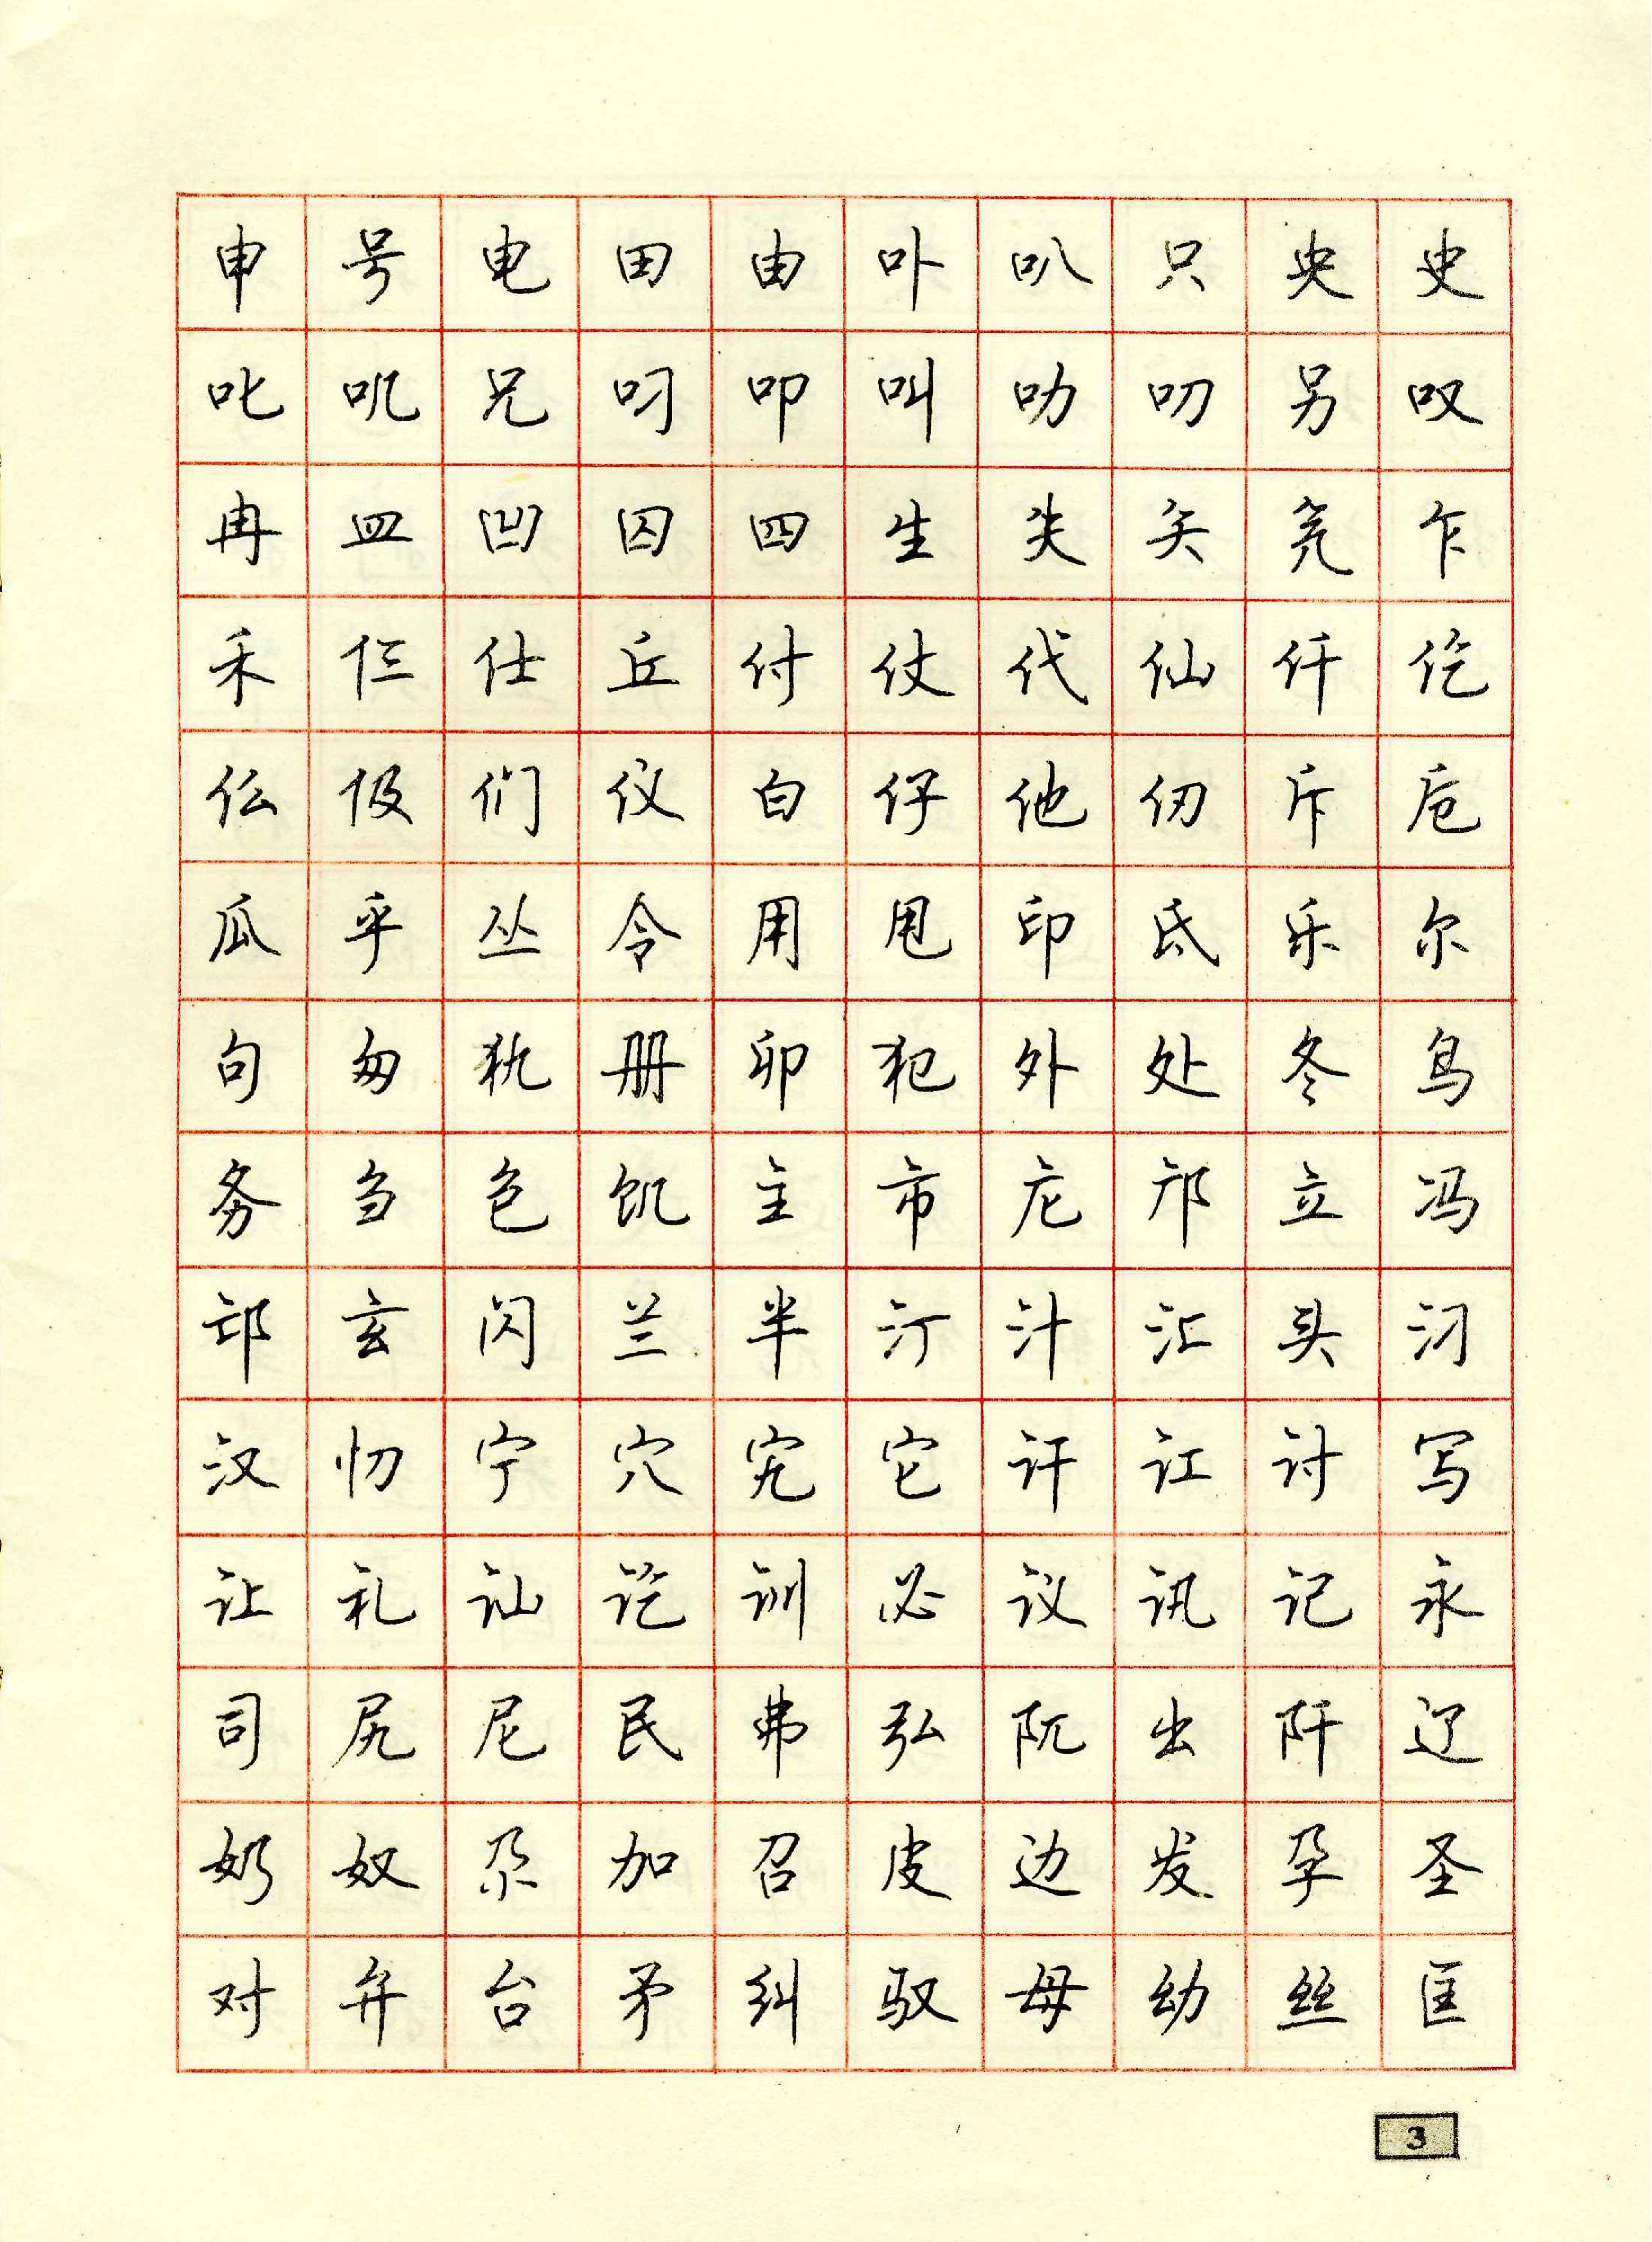 申号电田由卟叭只央史
叱叽兄叼叩叫叻叨另叹
冉皿凹囚四生失矢尧乍
禾仨仕丘付仗代仙仟仡
仫伋们仪白仔他仞斥卮
瓜乎丛令用甩印氐乐尔
句匆犰册卯犯外处冬鸟
务刍包饥主市庀邝立冯
邙玄闪兰半汀汁汇头汈
汉忉宁穴宄它讦讧讨写
让礼讪讫训必议讯记永
司尻尼民弗弘阢出阡辽
奶奴尕加召皮边发孕圣
对弁台矛纠驭母幼丝匡
3